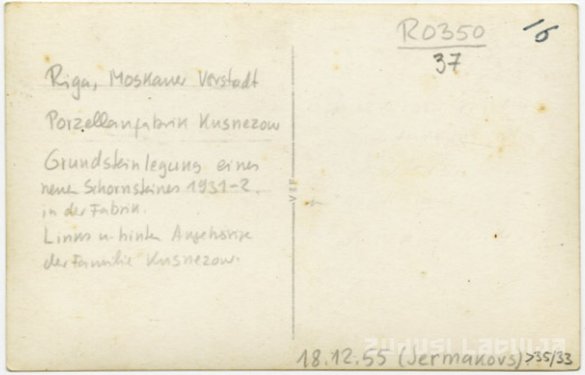 R0350
16
37
Riga, Moskauer Vorstadt
Porzellanfabrik Kusnezow
Grundsteinlegung eines
neuen Schornsteines 1931-2.
in der Fabrik.
Links u. hinten Angehörige
der Familie Kusnezow.
VEF
ZUDUSI LATVIJA
18.12.55 (Jermakovs) >35/33